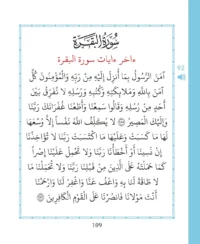 سُورَةُ البَقَرَةِ
ءاخر ءايات سورة البقرة
92
ءَامَنَ الرَّسُولُ بِمَا أُنزِلَ إِلَيْهِ مِنْ رَبِّهِ وَالْمُؤْمِنُونَ كُلٌّ
ءَامَنَ بِاللَّهِ وَمَلَائِكَتِهِ وَكُتُبِهِ وَرُسُلِهِ لَا نُفَرِّقُ بَيْنَ
أَحَدٍ مِنْ رُسُلِهِ وَقَالُوا سَمِعْنَا وَأَطَعْنَا غُفْرَانَكَ رَبَّنَا
وَإِلَيْكَ الْمَصِيرُ ۞ لَا يُكَلِّفُ اللَّهُ نَفْسًا إِلَّا وُسْعَهَا
لَهَا مَا كَسَبَتْ وَعَلَيْهَا مَا اكْتَسَبَتْ رَبَّنَا لَا تُؤَاخِذْنَا
إِنْ نَسِينَا أَوْ أَخْطَأْنَا رَبَّنَا وَلَا تَحْمِلْ عَلَيْنَا إِصْرًا
كَمَا حَمَلْتَهُ عَلَى الَّذِينَ مِنْ قَبْلِنَا رَبَّنَا وَلَا تُحَمِّلْنَا مَا
لَا طَاقَةَ لَنَا بِهِ وَاعْفُ عَنَّا وَاغْفِرْ لَنَا وَارْحَمْنَا
أَنْتَ مَوْلَانَا فَانْصُرْنَا عَلَى الْقَوْمِ الْكَافِرِينَ ۞
109